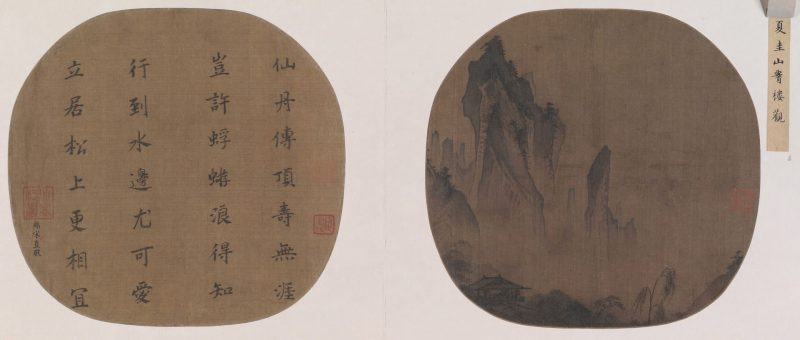 夏圭山霄楼觀
仙丹傳頂壽無涯
豈許蜉蝣浪得知
行到水邊尤可愛
立居松上更相宜